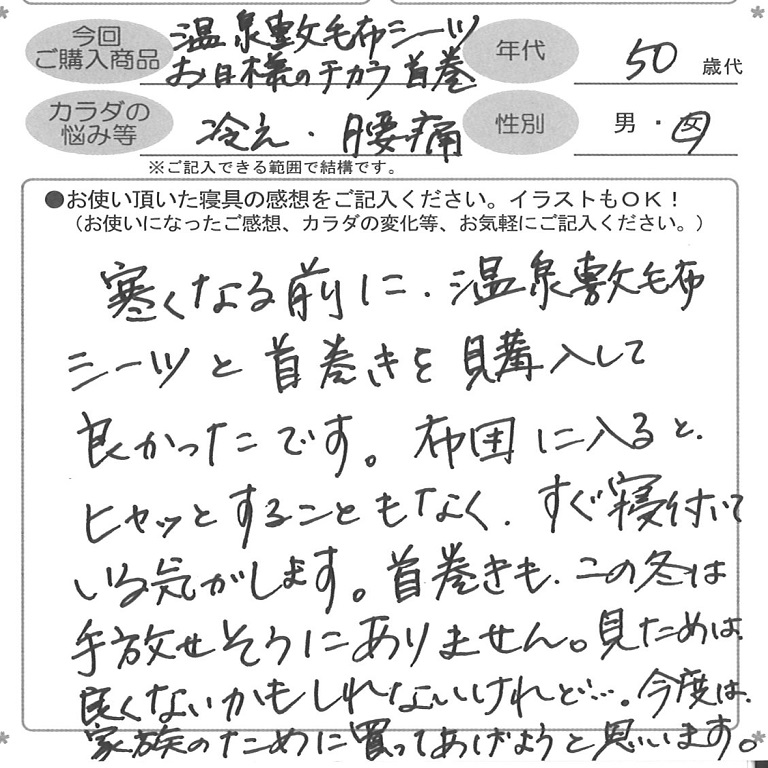 今回
ご購入商品
温泉敷毛布シーツ
お日様のチカラ首巻
年代
50 歳代
カラダの
悩み等
冷え・腰痛
性別
男・女
※ご記入できる範囲で結構です。
●お使い頂いた寝具の感想をご記入ください。イラストもOK！
（お使いになったご感想、カラダの変化等、お気軽にご記入ください。）
寒くなる前に、温泉敷毛布
シーツと首巻きを購入して
良かったです。布団に入ると、
ヒヤッとすることもなく、すぐ寝付いて
いる気がします。首巻きも、この冬は
手放せそうにありません。見ためは、
良くないかもしれないけれど…。今度は、
家族のために買ってあげようと思います。